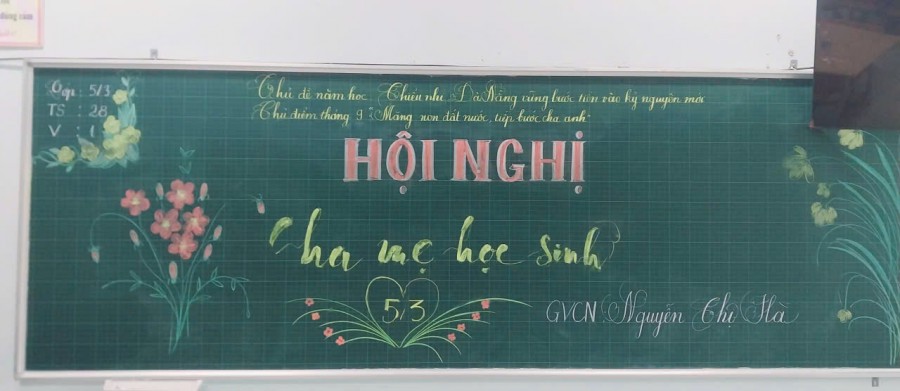 đúng cảm
Lớp : 5/3
TS : 28
V : 1
Chủ đề năm học Thiếu nhi Đà Nẵng vững bước tiến vào kỷ nguyên mới
Chủ điểm tháng 9: "Măng non đất nước, tiếp bước cha anh"
HỘI NGHỊ
Cha mẹ học sinh
5/3
GVCN: Nguyễn Thị Hà